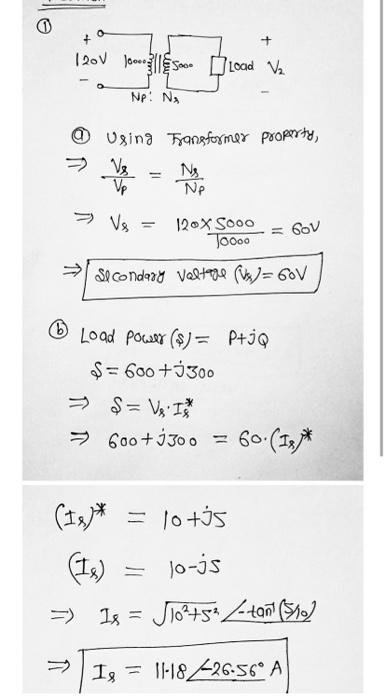 ①
+ +
120V 10000 5000 Load V₂
- -
Np: Ns
ⓐ Using Transformer property,
⇒ Vs/Vp = Ns/Np
⇒ Vs = 120×5000/10000 = 60V
⇒ Secondary Voltage (Vs) = 60V
ⓑ Load Power (S) = P+jQ
S = 600+j300
⇒ S = Vs·Is*
⇒ 600+j300 = 60·(Is)*
(Is)* = 10+j5
(Is) = 10-j5
⇒ Is = √10²+5² ∠-tan¹(5/10)
⇒ Is = 11.18∠-26.56° A